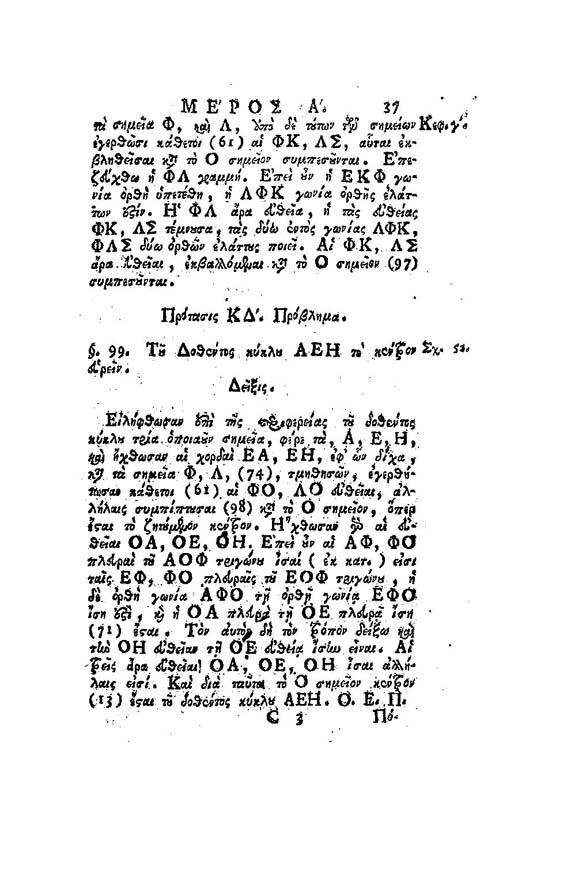 ΜΕΡΟΣ Α΄. 37
τὰ σημεῖα Φ, καὶ Λ, ὑπὸ δὲ τούτων τῶν σημείων Κεφ. γ΄.
ἐγερθῶσι κάθετοι (61) αἱ ΦΚ, ΛΣ, αὗται ἐκ-
βληθεῖσαι κατὰ τὸ Ο σημεῖον συμπεσοῦνται. Ἐπε-
ζεύχθω ἡ ΦΛ γραμμή. Ἐπεὶ οὖν ἡ ΕΚΦ γω-
νία ὀρθὴ ὑπετέθη, ἡ ΛΦΚ γωνία ὀρθῆς ἐλάτ-
των ἐστίν. Ἡ ΦΛ ἄρα εὐθεῖα, ἡ τὰς εὐθείας
ΦΚ, ΛΣ τέμνουσα, τὰς δύω ἐντὸς γωνίας ΛΦΚ,
ΦΛΣ δύω ὀρθῶν ἐλάττους ποιεῖ. Αἱ ΦΚ, ΛΣ
ἄρα εὐθεῖαι, ἐκβαλλόμεναι κατὰ τὸ Ο σημεῖον (97)
συμπεσοῦνται.
Πρότασις ΚΔ΄. Πρόβλημα.
§. 99. Τοῦ Δοθέντος κύκλου ΑΕΗ τὸ κέντρον Σχ. 52.
εὑρεῖν.
Δεῖξις.
Εἰλήφθωσαν ἐπὶ τῆς περιφερείας τοῦ δοθέντος
κύκλου τρία ὁποιαοῦν σημεῖα, φέρε τὰ, Α, Ε, Η,
καὶ ἤχθωσαν αἱ χορδαὶ ΕΑ, ΕΗ, ἐφ' ὧν δίχα,
κατὰ τὰ σημεῖα Φ, Λ, (74), τμηθησῶν, ἐγερθή-
τωσαν κάθετοι (61) αἱ ΦΟ, ΛΟ εὐθεῖαι, ἀλ-
λήλαις συμπίπτουσαι (98) κατὰ τὸ Ο σημεῖον, ὅπερ
ἔσται τὸ ζητούμενον κέντρον. Ἤχθωσαν γὰρ αἱ εὐ-
θεῖαι ΟΑ, ΟΕ, ΟΗ. Ἐπεὶ οὖν αἱ ΑΦ, ΦΟ
πλευραὶ τοῦ ΑΟΦ τριγώνου ἴσαί (ἑκ κατ.) εἰσι
ταῖς ΕΦ, ΦΟ πλευραῖς τοῦ ΕΟΦ τριγώνου, ἡ
δὲ ὀρθὴ γωνία ΑΦΟ τῇ ὀρθῇ γωνίᾳ ΕΦΟ
ἴση ἐστὶ, καὶ ἡ ΟΑ πλευρὰ τῇ ΟΕ πλευρᾷ ἴση
(71) ἔσται. Τὸν αὐτὸν δὴ τὸν τρόπον δείξω καὶ
τὴν ΟΗ εὐθεῖαν τῇ ΟΕ εὐθείᾳ ἴσην εἶναι. Αἱ
τρεῖς ἄρα εὐθεῖαι ΟΑ, ΟΕ, ΟΗ ἴσαι ἀλλή-
λαις εἰσί. Καὶ διὰ ταῦτα τὸ Ο σημεῖον κέντρον
(13) ἔσται τοῦ δοθέντος κύκλου ΑΕΗ. Ο. Ε. Π.
C 3 Πό-